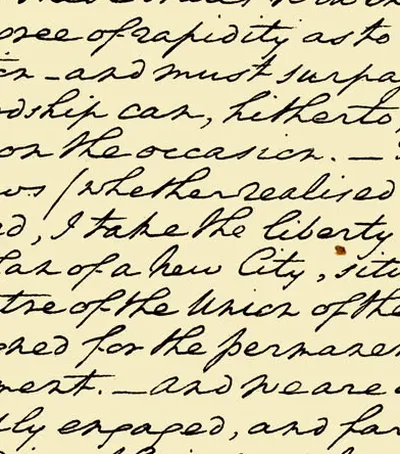 gree of rapidity as to
and must surpa
dship can, hitherto,
on the occasion. —
ws / whether realised
ed, I take the liberty
lan of a new City, situ
tre of the Union of the
gned for the permanen
ment. — and we are
ly engaged, and far